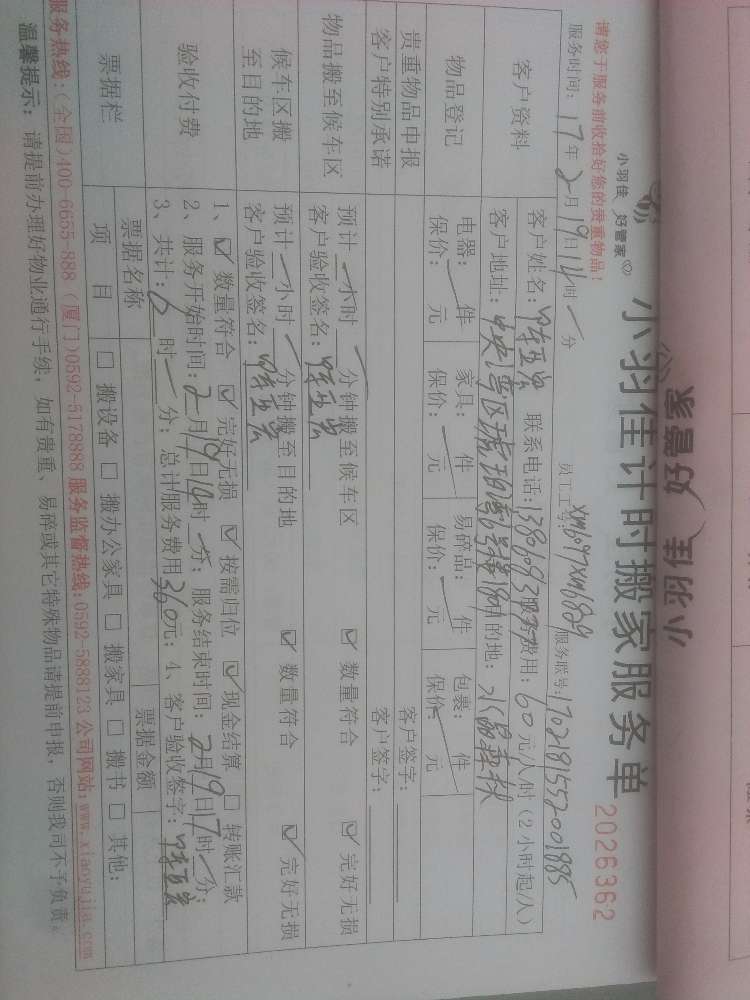 家管好 佳羽小
小羽佳 好管家
小羽佳计时搬家服务单
2026362
请您于服务前收拾好您的贵重物品！
服务时间：17年2月19日14时一分 员工工号：xm697xm6829 服务联号：
客户资料
客户姓名： 联系电话： 服务费用：60元/小时（2小时起/人）
客户地址：中央湾区 目的地：
物品登记
电器：一件 家具：一件 易碎品：一件 包裹：一件
保价：元 保价：元 保价：元 保价：元
贵重物品申报
客户签字：
客户特别承诺
客户签字：
物品搬至候车区
预计一小时一分钟搬至候车区 ☑ 数量符合 ☑ 完好无损
客户验收签名：
候车区搬至目的地
预计一小时一分钟搬至目的地 ☑ 数量符合 ☑ 完好无损
客户验收签名：
验收付费
1、☑ 数量符合 ☑ 完好无损 ☑ 按需归位 ☑ 现金结算 ☐ 转账汇款
2、服务开始时间：2月19日14时一分；服务结束时间：2月19日17时一分；
3、共计：6时一分；总计服务费用360元；4、客户验收签字：
票据栏
票据名称 票据金额
项目 ☐ 搬设备 ☐ 搬办公家具 ☐ 搬家具 ☐ 搬书 ☐ 其他：
服务热线：(全国)400-6655-888 (厦门)0592-5178888 服务监督热线：0592-5888123 公司网站：www.xiaoyujia.com
温馨提示：请提前办理好物业通行手续，如有贵重、易碎或其它特殊物品请提前申报，否则我司不予负责。